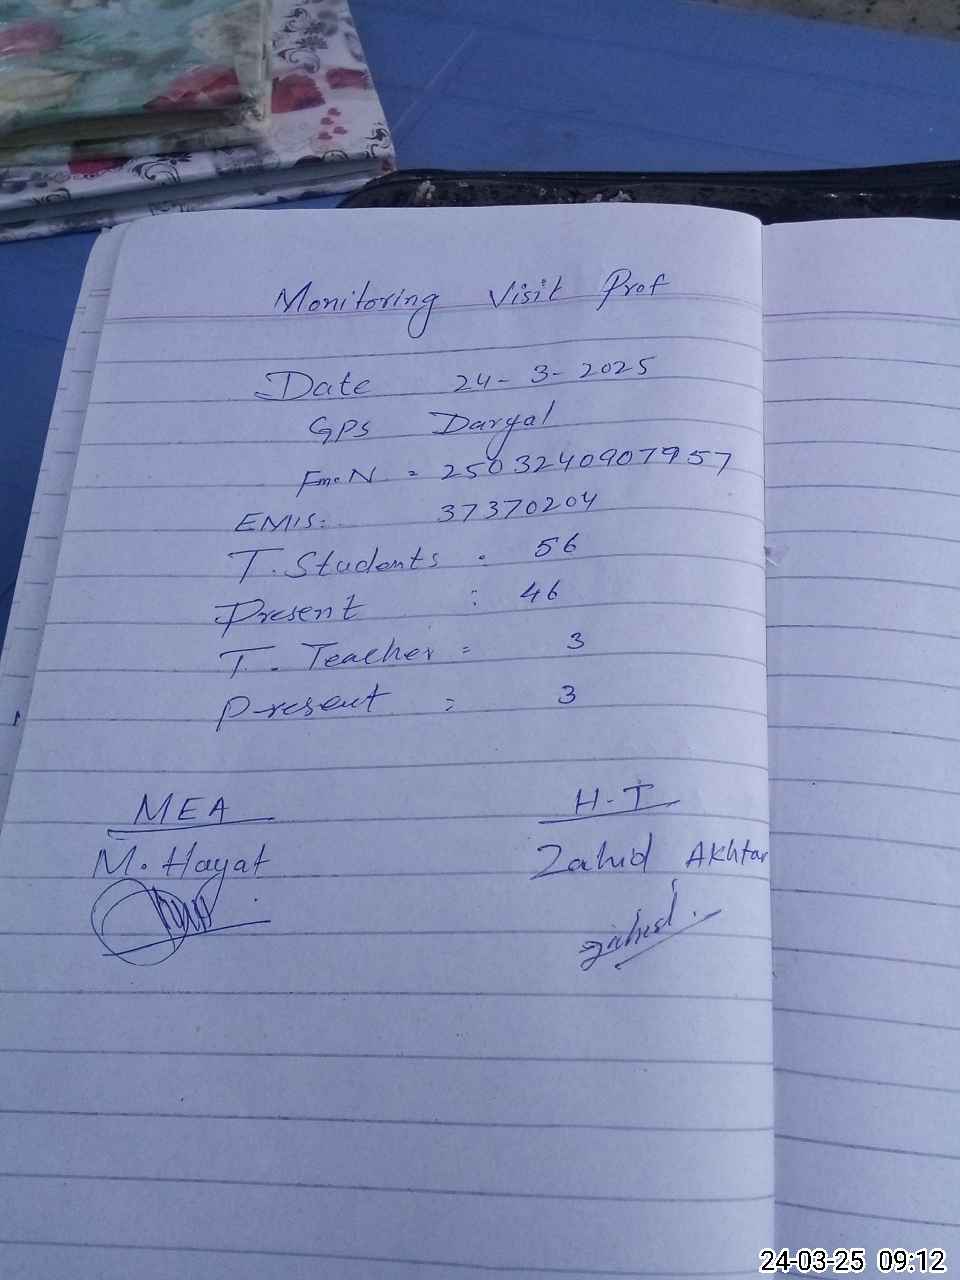 Monitoring Visit Prof
Date 24-3-2025
GPS Daryal
Fm.N = 2503240907957
EMIS: 37370204
T. Students : 56
Present : 46
T. Teacher = 3
Present = 3
MEA H-T
M. Hayat Zahid Akhtar
zahid.
24-03-25 09:12